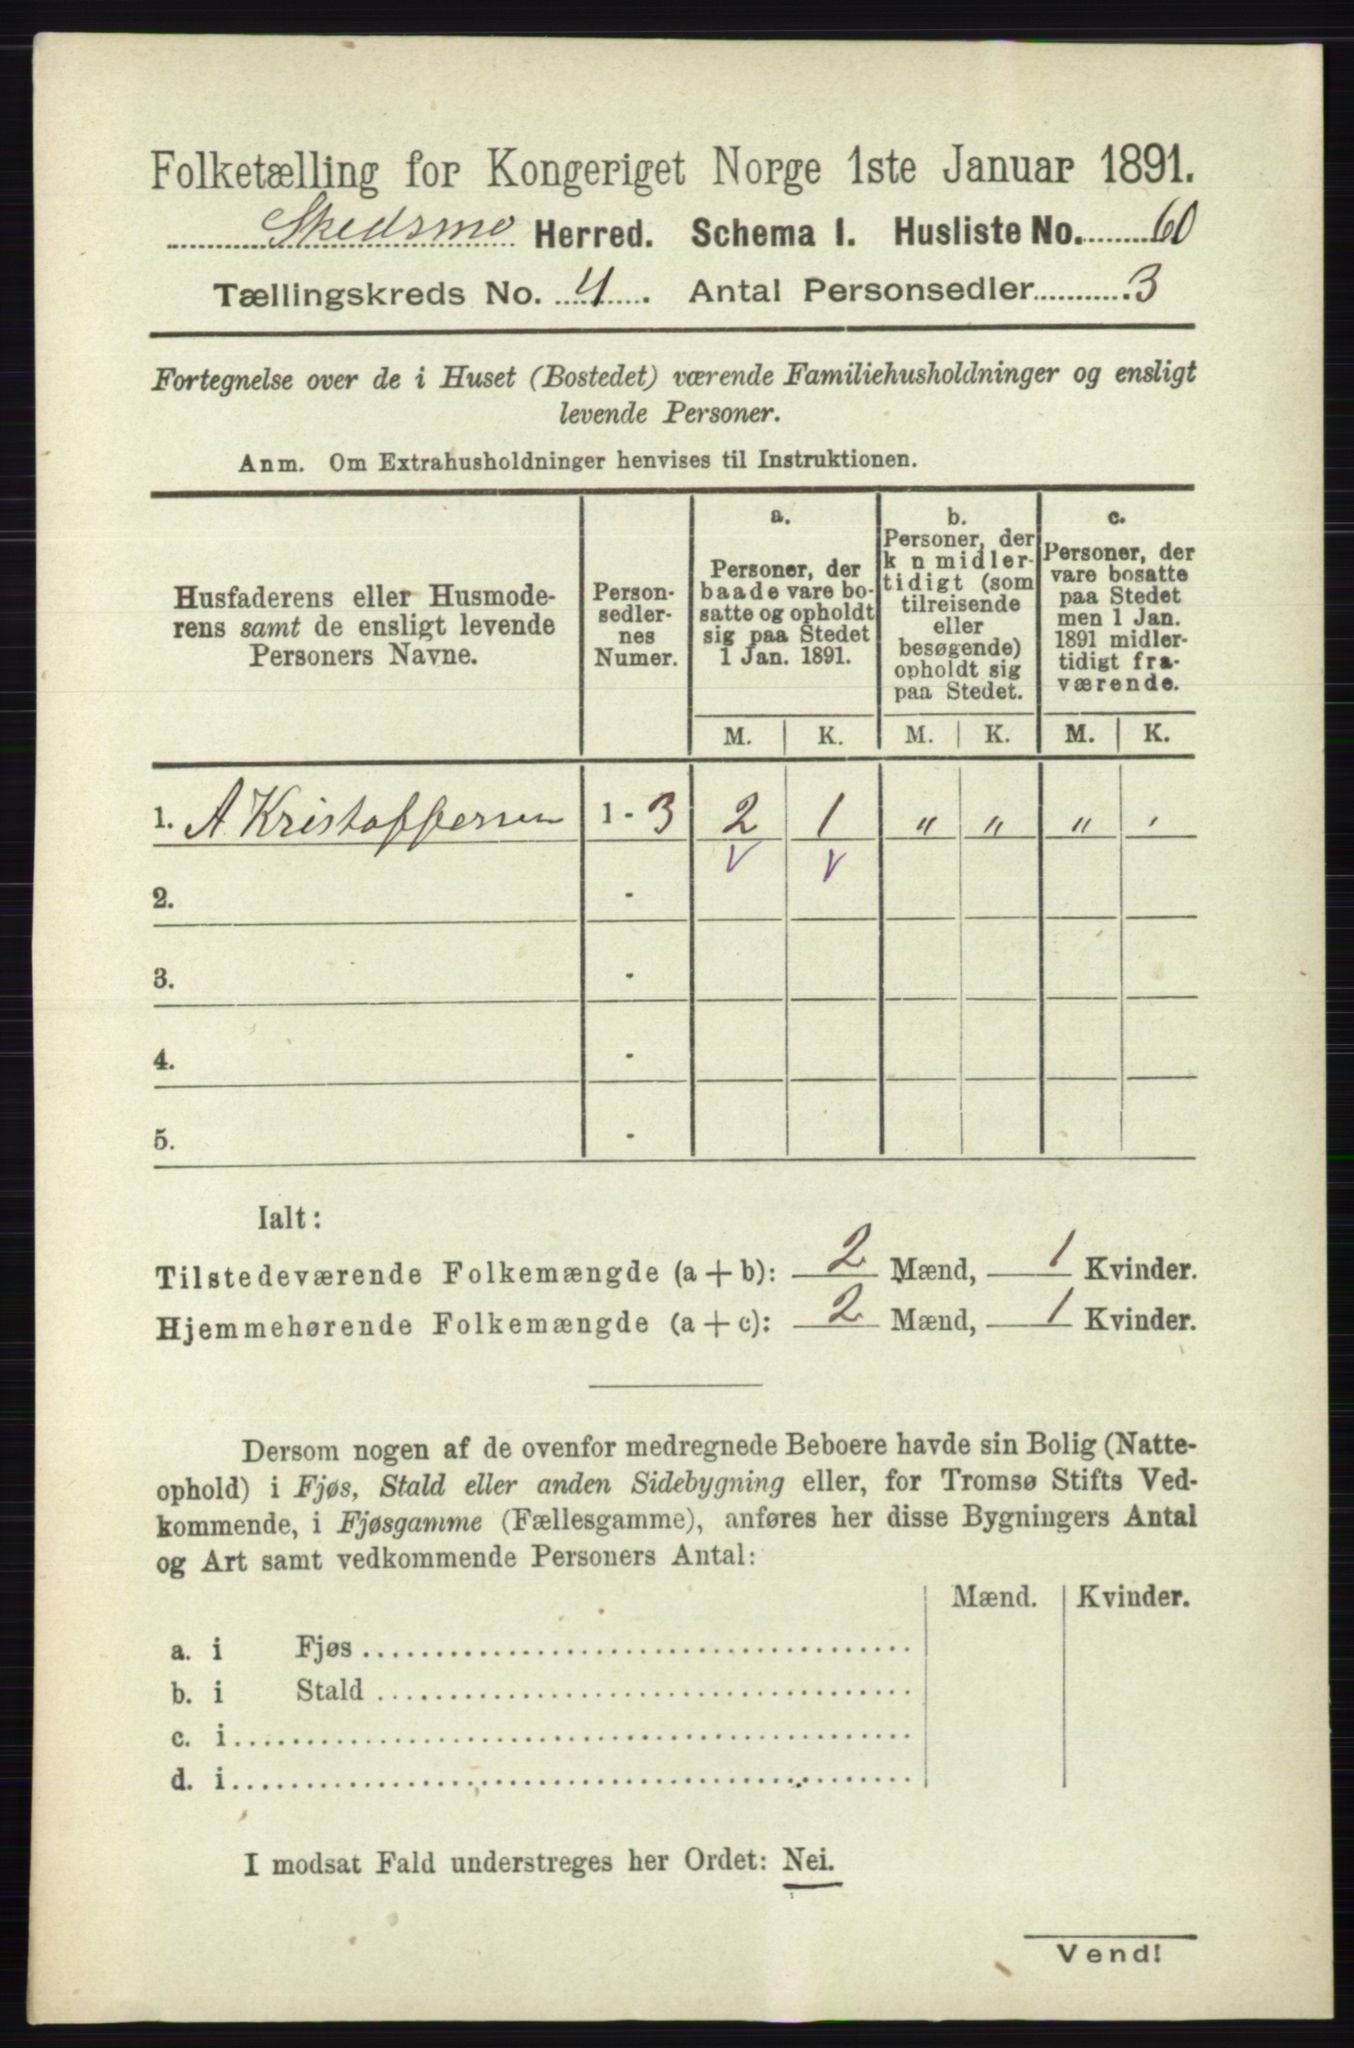 Folketælling for Kongeriget Norge 1ste Januar 1891.
Skedsmo Herred. Schema I. Husliste No. 60
Tællingskreds No. 4. Antal Personsedler 3
Fortegnelse over de i Huset (Bostedet) værende Familiehusholdninger og ensligt
levende Personer.
Anm. Om Extrahusholdninger henvises til Instruktionen.
Husfaderens eller Husmode-
rens samt de ensligt levende
Personers Navne.
Person-
sedler-
nes
Numer.
a.
Personer, der
baade vare bo-
satte og opholdt
sig paa Stedet
1 Jan. 1891.
b.
Personer, der
k n midler-
tidigt (som
tilreisende
eller
besøgende)
opholdt sig
paa Stedet.
c.
Personer, der
vare bosatte
paa Stedet
men 1 Jan.
1891 midler-
tidigt fra-
værende.
M. K. M. K. M. K.
1. A Kristoffersen 1 - 3 2 1 " " " '
V V
2. -
3. -
4. -
5. -
Ialt:
Tilstedeværende Folkemængde (a + b): 2 Mænd, 1 Kvinder.
Hjemmehørende Folkemængde (a + c): 2 Mænd, 1 Kvinder.
Dersom nogen af de ovenfor medregnede Beboere havde sin Bolig (Natte-
ophold) i Fjøs, Stald eller anden Sidebygning eller, for Tromsø Stifts Ved-
kommende, i Fjøsgamme (Fællesgamme), anføres her disse Bygningers Antal
og Art samt vedkommende Personers Antal:
Mænd. Kvinder.
a. i Fjøs
b. i Stald
c. i
d. i
I modsat Fald understreges her Ordet: Nei.
Vend!